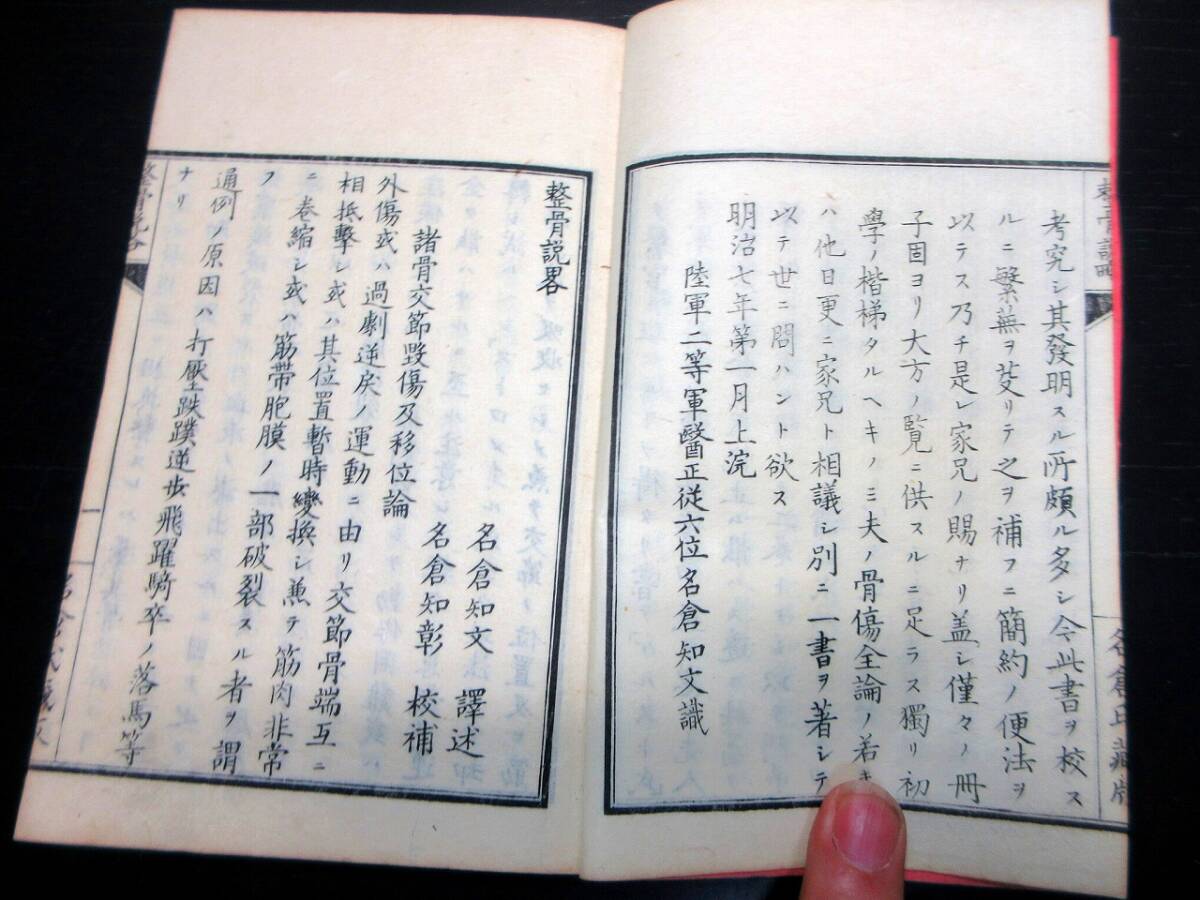 考究シ其發明スル所頗ル多シ今此書ヲ校ス
ルニ繁蕪ヲ芟リテ之ヲ補フニ簡約ノ便法ヲ
以テス乃チ是レ家兄ノ賜ナリ盖シ僅々ノ冊
子固ヨリ大方ノ覽ニ供スルニ足ラス獨リ初
學ノ楷梯タルヘキノミ夫ノ骨傷全論ノ若キ
ハ他日更ニ家兄ト相議シ別ニ一書ヲ著シテ
以テ世ニ問ハント欲ス
明治七年第一月上浣
陸軍二等軍醫正從六位名倉知文識
名倉氏藏版
整骨説畧
諸骨交節毀傷及移位論
名倉知文 譯述
名倉知彰 校補
外傷或ハ過劇逆戾ノ運動ニ由リ交節骨端互ニ
相抵擊シ或ハ其位置暫時變換シ兼テ筋肉非常
ニ卷縮シ或ハ筋帶胞膜ノ一部破裂スル者ヲ謂
フ
通例ノ原因ハ打壓跌蹼逆歩飛躍騎卒ノ落馬等
ナリ
整骨説畧
一